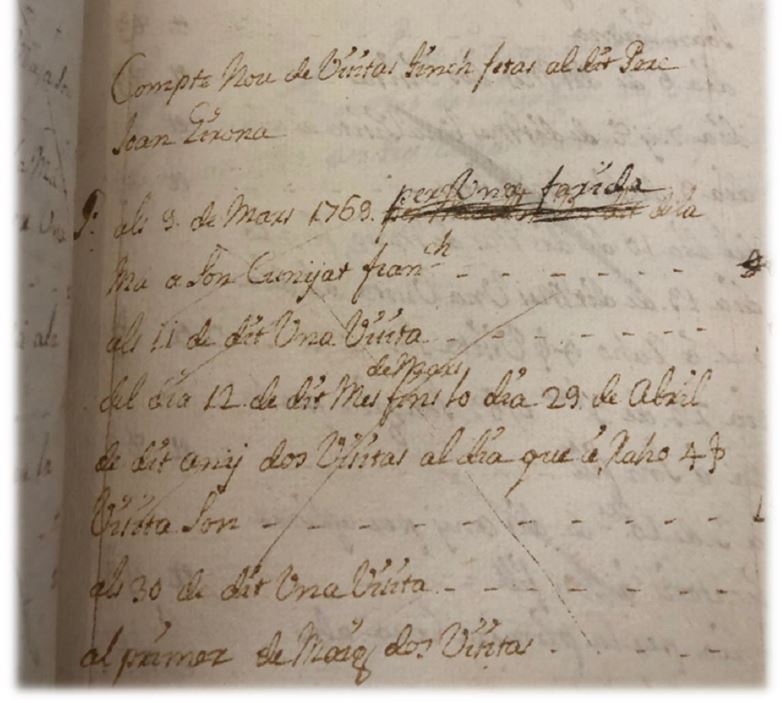 Compte Nou de Visitas tinch fetas al dit Pere
Joan Girona
P.º als 3. de Mars 1763. per Una farida dela
Ma a Son Cunyat franch
als 11 de dit Una Visita
del dia 12. de dit Mes de Mars fins lo dia 29. de Abril
de dit any dos Visitas al dia que á Raho 4 P
Visita Son
als 30 de dit Una Visita
al primer de Maig dos Visitas